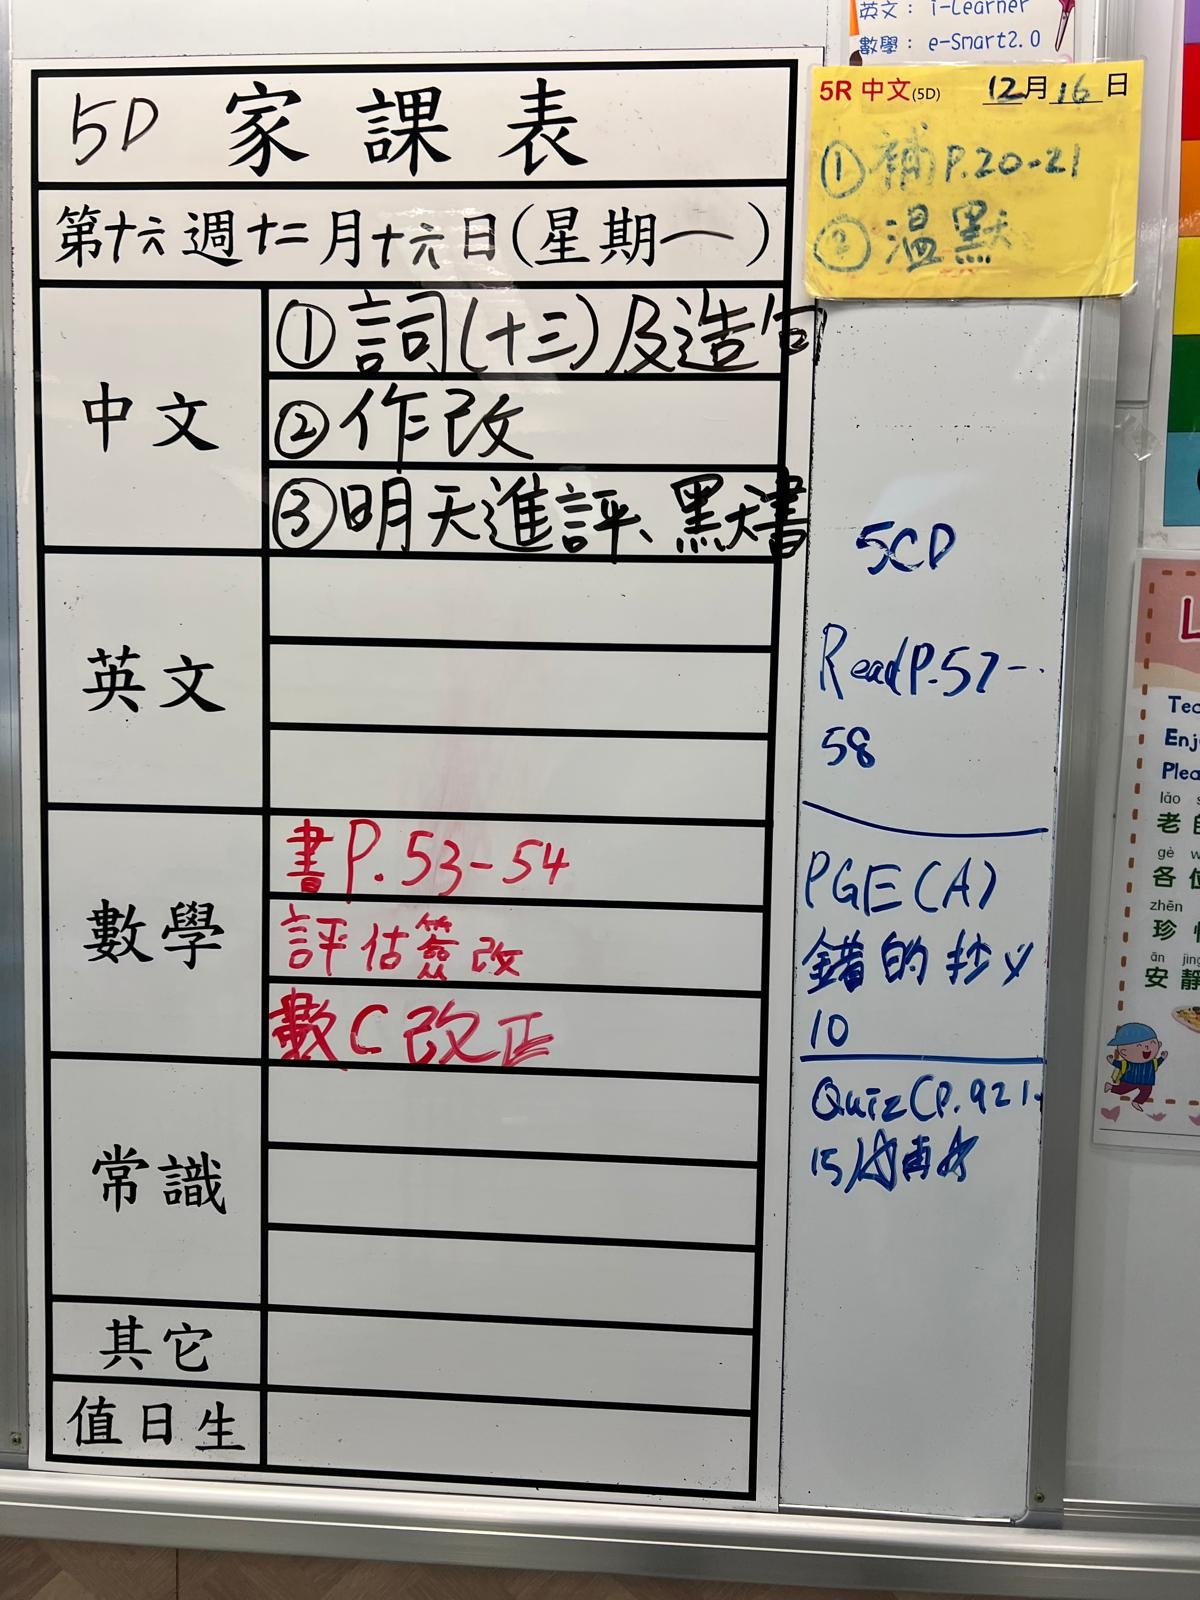 英文： i-Learner
數學： e-Smart2.0
5R 中文(5D) 12月16日
① 補P.20-21
② 溫默
5D 家課表
第十六週十二月十六日(星期一)
中文
① 詞(十三)及造句
② 作改
③ 明天進評、默書
英文
數學
書P.53-54
評估簽改
數C改正
常識
其它
值日生
5CD
Read P.57-
58
PGE(A)
錯的抄
10
Quiz(P.921-
15)
Plea
lǎo
老
gè
各
zhēn
珍
ān jìng
安靜